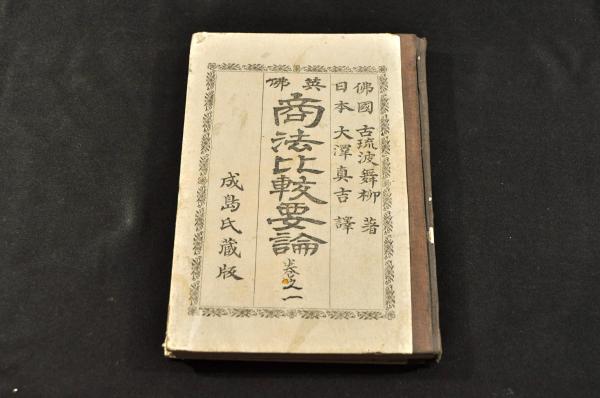 佛國 古琉波舞柳 著
日本 大澤真吉 譯
英佛
商法比較要論 卷之一
成島氏藏版